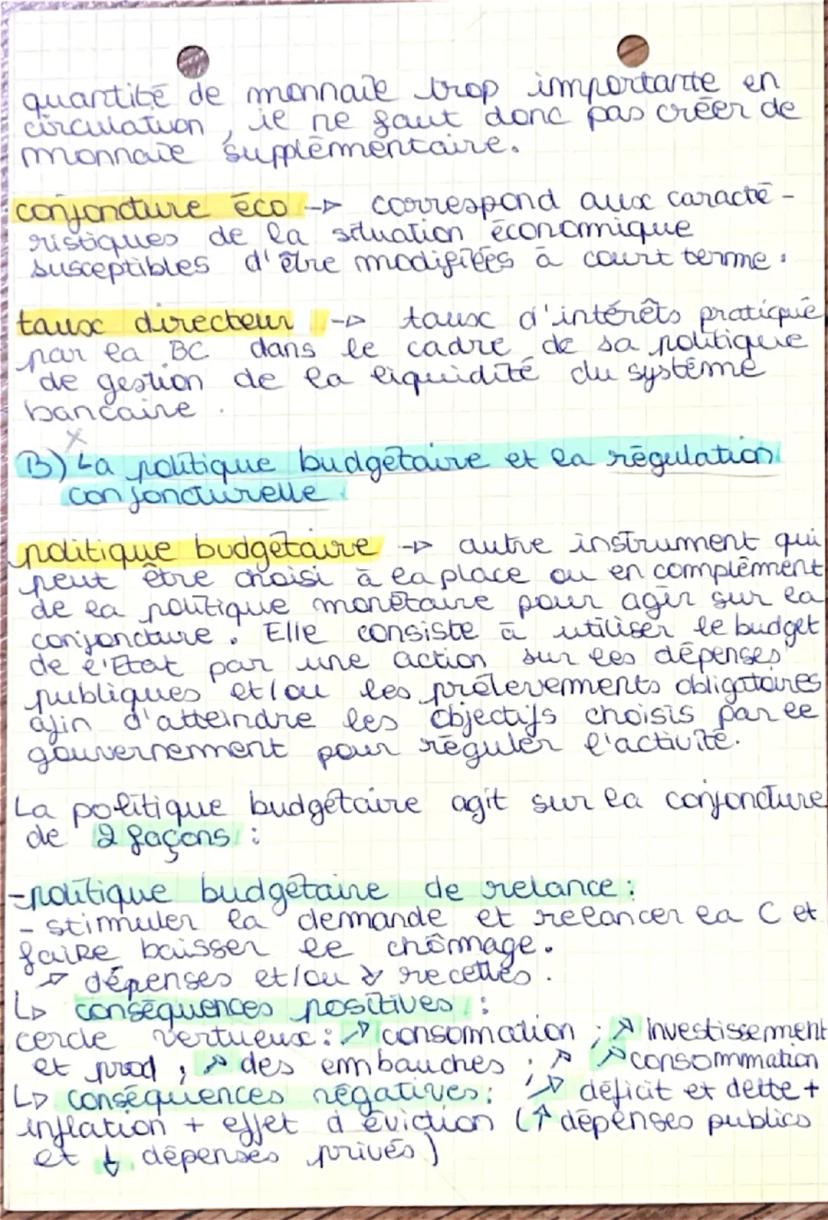 quantité de monnaie trop importante en
circulation, il ne faut donc pas créer de
monnaie supplémentaire.
conjoncture éco -> correspond aux caracté-
ristiques de la situation économique
susceptibles d'être modifiées à court terme.
taux directeur -> taux d'intérêts pratiqué
par la BC dans le cadre de sa politique
de gestion de la liquidité du système
bancaire.
B) La politique budgétaire et la régulation
conjoncturelle
politique budgétaire -> autre instrument qui
peut être choisi à la place ou en complément
de la politique monétaire pour agir sur la
conjoncture. Elle consiste à utiliser le budget
de l'Etat par une action sur les dépenses
publiques et/ou les prélèvements obligatoires
afin d'atteindre les objectifs choisis par le
gouvernement pour réguler l'activité.
La politique budgétaire agit sur la conjoncture
de 2 façons :
-politique budgétaire de relance :
- stimuler la demande et relancer la C et
faire baisser le chômage.
↗ dépenses et/ou ↘ recettes.
↳ conséquences positives :
cercle vertueux : ↗ consomation ; ↗ investissement
et prod ; ↗ des embauches ; ↗ ↗ consommmation
↳ conséquences négatives : ↗ déficit et dette +
inflation + effet d'éviction (↑ dépenses publics
et ↓ dépenses privés)